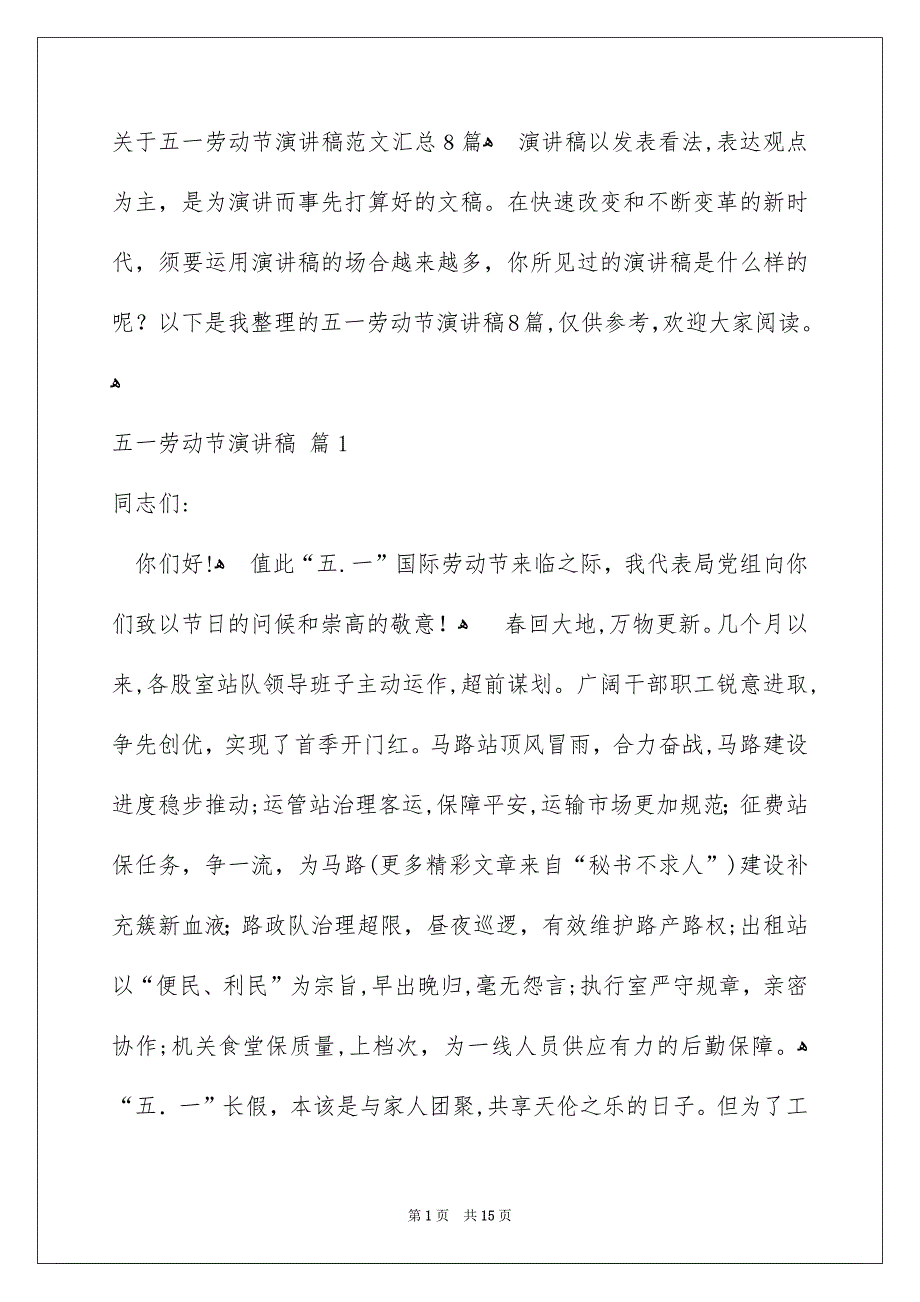 关于五一劳动节演讲稿范文汇总8篇ﻫ 演讲稿以发表看法,表达观点
为主，是为演讲而事先打算好的文稿。在快速改变和不断变革的新时
代，须要运用演讲稿的场合越来越多，你所见过的演讲稿是什么样的
呢？以下是我整理的五一劳动节演讲稿8篇,仅供参考,欢迎大家阅读。
ﻫ
五一劳动节演讲稿 篇1
同志们:
你们好!ﻫ 值此“五.一”国际劳动节来临之际，我代表局党组向你
们致以节日的问候和崇高的敬意！ﻫ 春回大地,万物更新。几个月以
来,各股室站队领导班子主动运作,超前谋划。广阔干部职工锐意进取,
争先创优，实现了首季开门红。马路站顶风冒雨，合力奋战,马路建设
进度稳步推动;运管站治理客运,保障平安,运输市场更加规范；征费站
保任务，争一流，为马路(更多精彩文章来自“秘书不求人”)建设补
充簇新血液；路政队治理超限，昼夜巡逻，有效维护路产路权;出租站
以“便民、利民”为宗旨,早出晚归,毫无怨言;执行室严守规章，亲密
协作;机关食堂保质量,上档次，为一线人员供应有力的后勤保障。ﻫ
“五．一”长假，本该是与家人团聚,共享天伦之乐的日子。但为了工
第1页 共15页